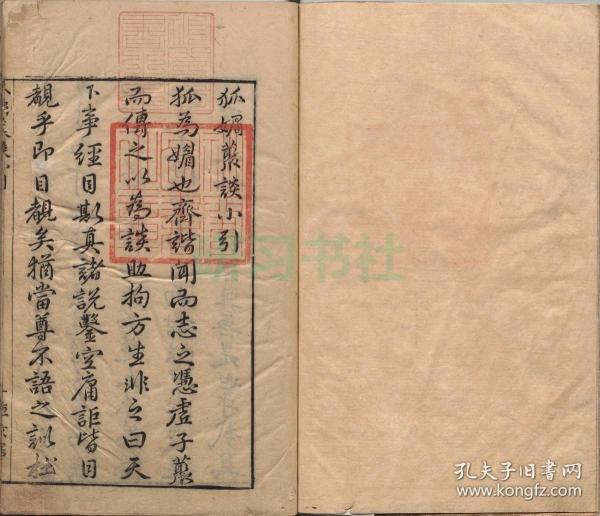 狐媚叢談小引
狐為媚也齊諧聞而志之憑虛子叢
而傳之以為談助拘方生非之曰天
下事經目斯真諸說鑿空庸詎皆目
覩乎即目覩矣猶當尊不語之訓
研习书社
孔夫子旧书网
www.kongfz.com